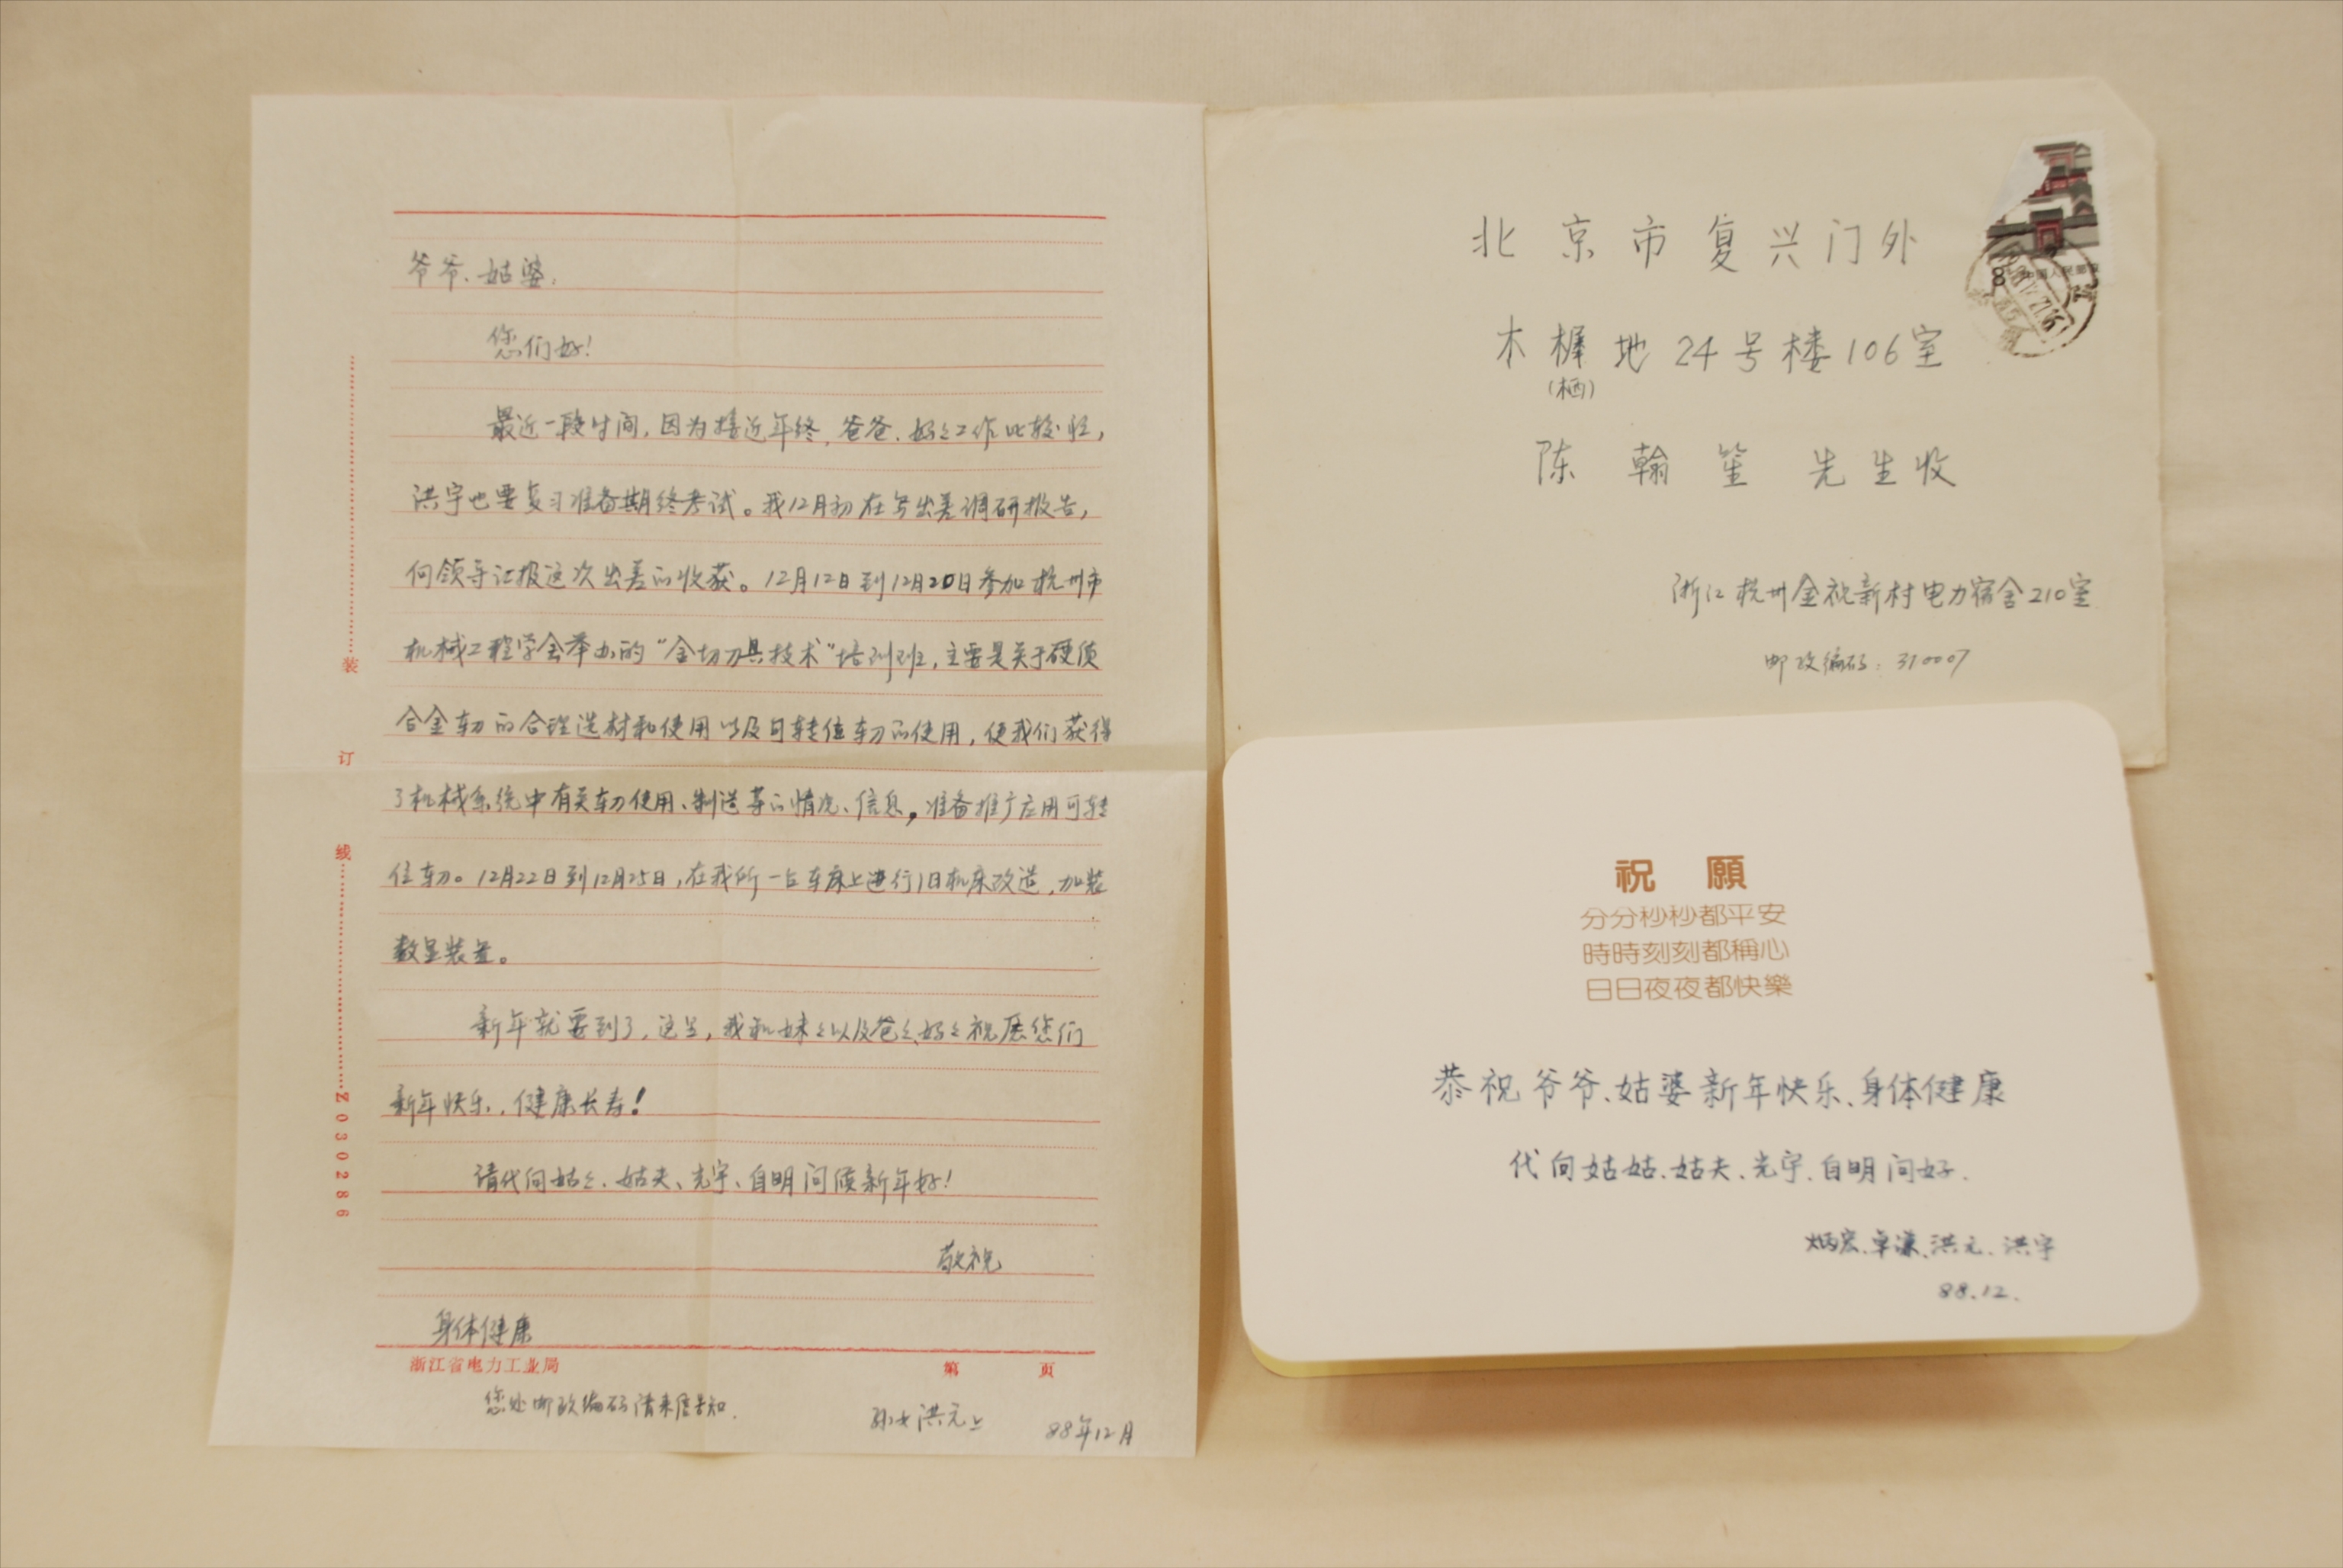 爷爷、姑婆,
您们好!
最近一段时间,因为接近年终,爸爸、妈〻工作比较忙,
洪宇也要复习准备期终考试。我12月初在写出差调研报告,
向领导汇报这次出差的收获。12月12日到12月20日参加杭州市
机械工程学会举办的“金切刀具技术”培训班,主要是关于硬质
合金车刀的合理选材和使用以及可转位车刀的使用,使我们获得
了机械系统中有关车刀使用、制造等的情况、信息,准备推广应用可转
位车刀。12月22日到12月25日,在我所一台车床上进行旧机床改造,加装
数显装置。
新年就要到了,这里,我和妹〻以及爸〻、妈〻祝愿您们
新年快乐,健康长寿!
请代向姑〻、姑夫、光宇、自明问候新年好!
敬祝
身体健康
浙江省电力工业局 第 页
您处邮政编码请来信告知.
孙女洪元上 88年12月
装
订
线
Z030286
北京市复兴门外
木樨地24号楼106室
(栖)
陈翰笙 先生收
浙江杭州金祝新村电力宿舍210室
邮政编码:310007
8
中国人民邮政
祝 願
分分秒秒都平安
時時刻刻都稱心
日日夜夜都快樂
恭祝爷爷、姑婆新年快乐、身体健康
代向姑姑、姑夫、光宇、自明问好.
炳宏、卓谦、洪元、洪宇
88.12.